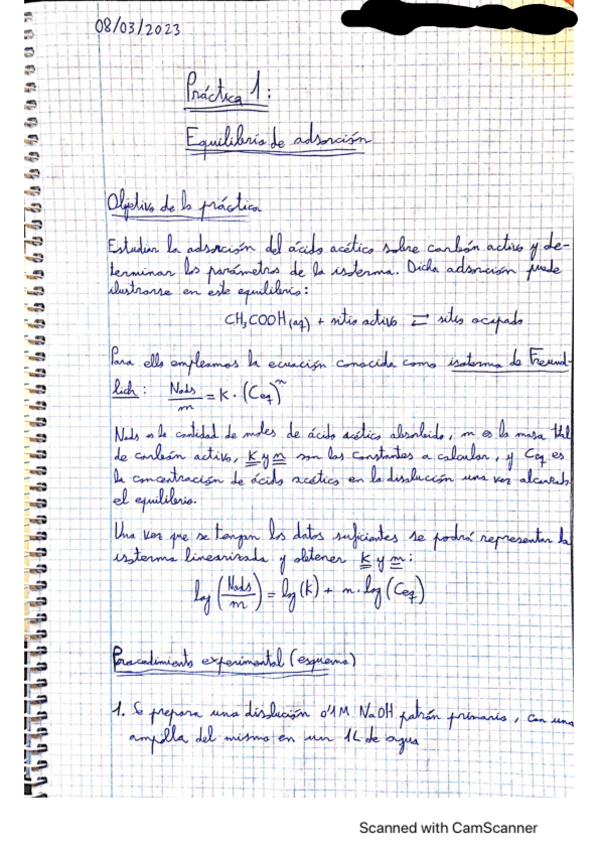 08/03/2023
Práctica 1:
Equilibrio de adsorción
Objetivo de la práctica
Estudiar la adsorción del ácido acético sobre carbón activo y de-
terminar los parámetros de la isoterma. Dicha adsorción puede
ilustrarse en este equilibrio:
CH3COOH(aq) + sitio activo ⇄ sitio ocupado
Para ello empleamos la ecuación conocida como isoterma de Freund-
lich: Nads/m = K · (Ceq)^n
Nads es la cantidad de moles de ácido acético absorbido, m es la masa total
de carbón activo, K y n son las constantes a calcular, y Ceq es
la concentración de ácido acético en la disolución una vez alcanzado
el equilibrio.
Una vez que se tengan los datos suficientes se podrá representar la
isoterma linearizada y obtener K y n:
log (Nads/m) = log(K) + n · log(Ceq)
Procedimiento experimental (esquema)
1. Se prepara una disolución 0'1M NaOH patrón primario, con una
ampolla del mismo en un 1L de agua
Scanned with CamScanner